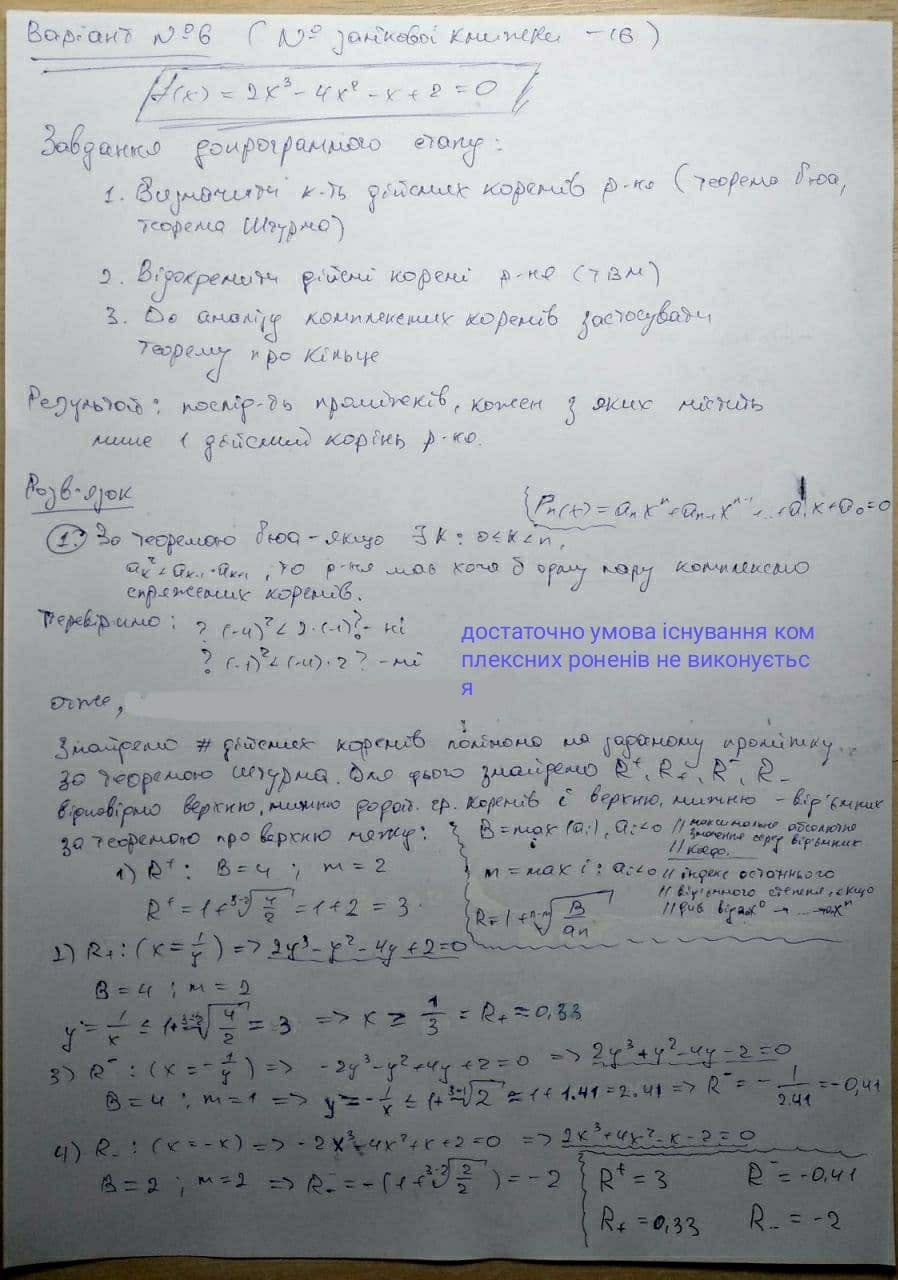 Варіант №6 ( № залікової книжки - 16 )
f(x) = 2x³ - 4x² - x + 2 = 0
Завдання допрограмного етапу:
1. Визначити к-ть дійсних коренів р-ня (теорема Гюа,
теорема Штурма)
2. Відокремити дійсні корені р-ня (твм)
3. До аналізу комплексних коренів застосувати
теорему про кільце
Результат: послід-ть проміжків, кожен з яких містить
лише 1 дійсний корінь р-ня.
Розв-язок
Pn(x) = aₙxⁿ + aₙ₋₁xⁿ⁻¹ + ... + a₁x + a₀ = 0
1. За теоремою Гюа - якщо ∃ k : 0 < k < n,
aₖ² < aₖ₋₁ · aₖ₊₁, то р-ня має хоча б одну пару комплексно
спряжених коренів.
Перевіримо: ? (-4)² < 2·(-1)? - ні
? (-1)² < (-4)·2 ? - ні
достаточно умова існування ком
плексних роненів не виконуєтьс
я
отже,
Знайдемо # дійсних коренів полінома на заданому проміжку
за теоремою Штурма. Для цього знайдемо R⁺, R₊, R⁻, R₋
відповідно верхню, нижню додат. гр. коренів і верхню, нижню - від'ємних
за теоремою про верхню межу:
B = max |aᵢ|, aᵢ<0 // максимальне абсолютне
значення серед від'ємних
// коеф.
m = max i : aᵢ<0 // індекс останнього
// від'ємного степеня, якщо
// див від ax⁰ → ... → axⁿ
R = 1 + ⁿ⁻ᵐ√(B/aₙ)
1) R⁺ : B = 4 ; m = 2
R⁺ = 1 + ³⁻²√(4/2) = 1 + 2 = 3
2) R₊ : (x = 1/y) => 2y³ - y² - 4y + 2 = 0
B = 4 ; m = 2
y = 1/x ≤ 1 + ³⁻²√(4/2) = 3 => x ≥ 1/3 = R₊ = 0,33
3) R⁻ : (x = -1/y) => -2y³ - y² + 4y + 2 = 0 => 2y³ + y² - 4y - 2 = 0
B = 4 ; m = 1 => y = -1/x ≤ 1 + ³⁻¹√2 = 1 + 1.41 = 2.41 => R⁻ = -1/2.41 = -0,41
4) R₋ : (x = -x) => -2x³ - 4x² + x + 2 = 0 => 2x³ + 4x² - x - 2 = 0
B = 2 ; m = 2 => R₋ = -(1 + ³⁻²√(2/2)) = -2
R⁺ = 3 R⁻ = -0,41
R₊ = 0,33 R₋ = -2